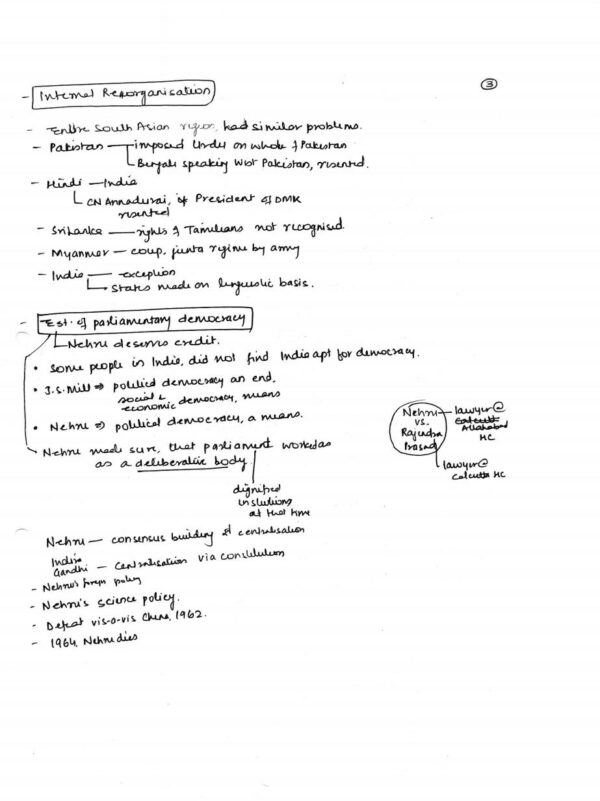 ③
- Internal Reorganisation
- Entire South Asian region, had similar problems.
- Pakistan — imposed Urdu on whole of Pakistan
Bengali speaking West Pakistan, resented.
- Hindi — India
CN Annadurai, 1st President of DMK
resented
- Srilanka — rights of Tamilians not recognised.
- Myanmar — coup, junta regime by army
- India — exception
States made on linguistic basis.
- Est. of parliamentary democracy
Nehru deserves credit.
• Some people in India, did not find India apt for democracy.
• J.S. Mill ⇒ political democracy an end,
social &
economic democracy, means
• Nehru ⇒ political democracy, a means.
Nehru made sure, that parliament worked as
as a deliberative body
dignified
institutions
at that time
Nehru
vs.
Rajendra
Prasad
lawyer @
Calcutt
Allahabad
HC
lawyer @
Calcutta HC
Nehru — consensus building & centralisation
Indira
Gandhi — Centralisation via constitution
- Nehru's foreign policy
- Nehru's science policy.
- Defeat vis-a-vis China, 1962.
- 1964, Nehru dies